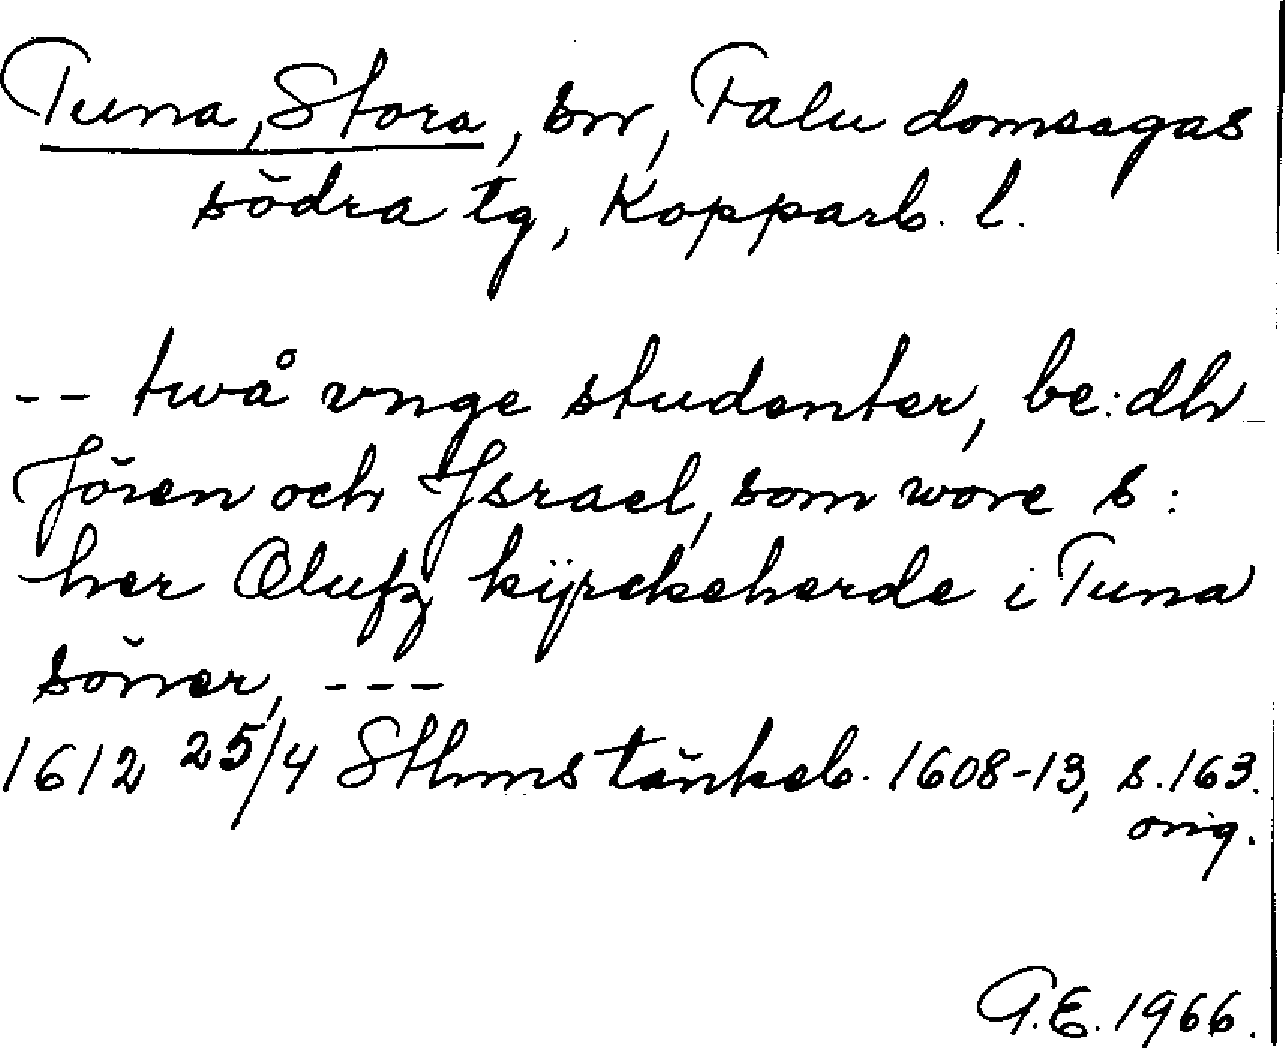 Tuna, Stora, sn, Falu domsagas
södra tg, Kopparb. l.
-- twå vnge studenter, be:dh
Jören och Jsrael, som wore s:
her Olufz kÿrckeherde i Tuna
söner, ---
1612 25/4 Sthms tänkeb. 1608-13, s. 163.
orig.
G.E. 1966.